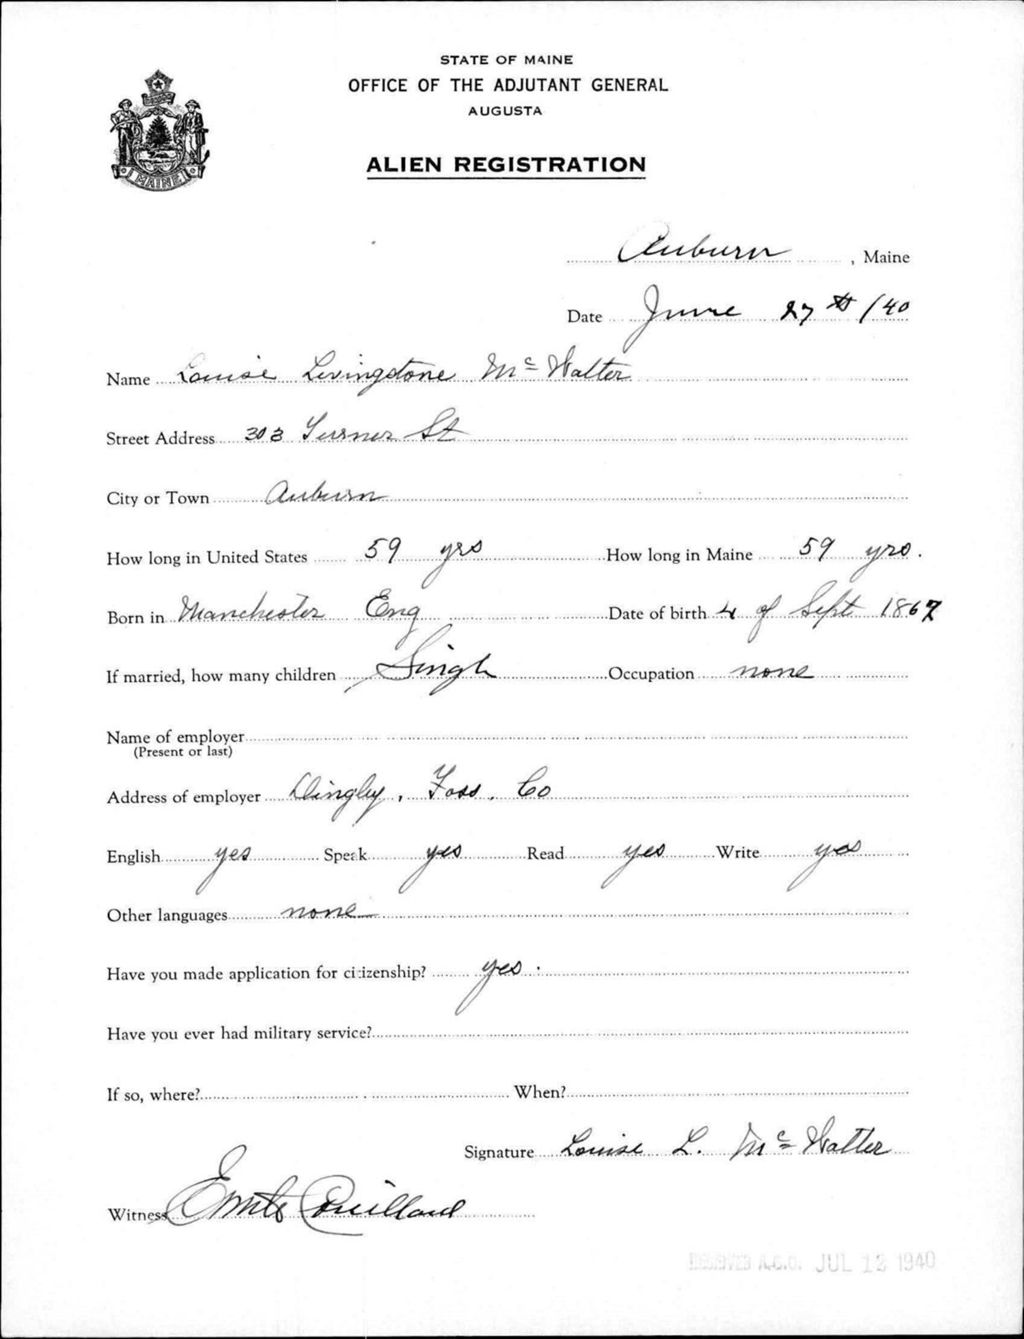 STATE OF MAINE
OFFICE OF THE ADJUTANT GENERAL
AUGUSTA
ALIEN REGISTRATION
MAINE
Auburn, Maine
Date June 27th /40
Name Louise Livingstone McWalter
Street Address 303 Turner St
City or Town Auburn
How long in United States 59 yrs How long in Maine 59 yrs.
Born in Manchester Eng Date of birth 4 of Sept 1867
If married, how many children Singl Occupation none
Name of employer
(Present or last)
Address of employer Dingley, Foss, Co
English yes Speak yes Read yes Write yes
Other languages none
Have you made application for citizenship? yes.
Have you ever had military service?
If so, where? When?
Signature Louise L. McWalter
Witness
RECEIVED A.G.O. JUL 12 1940